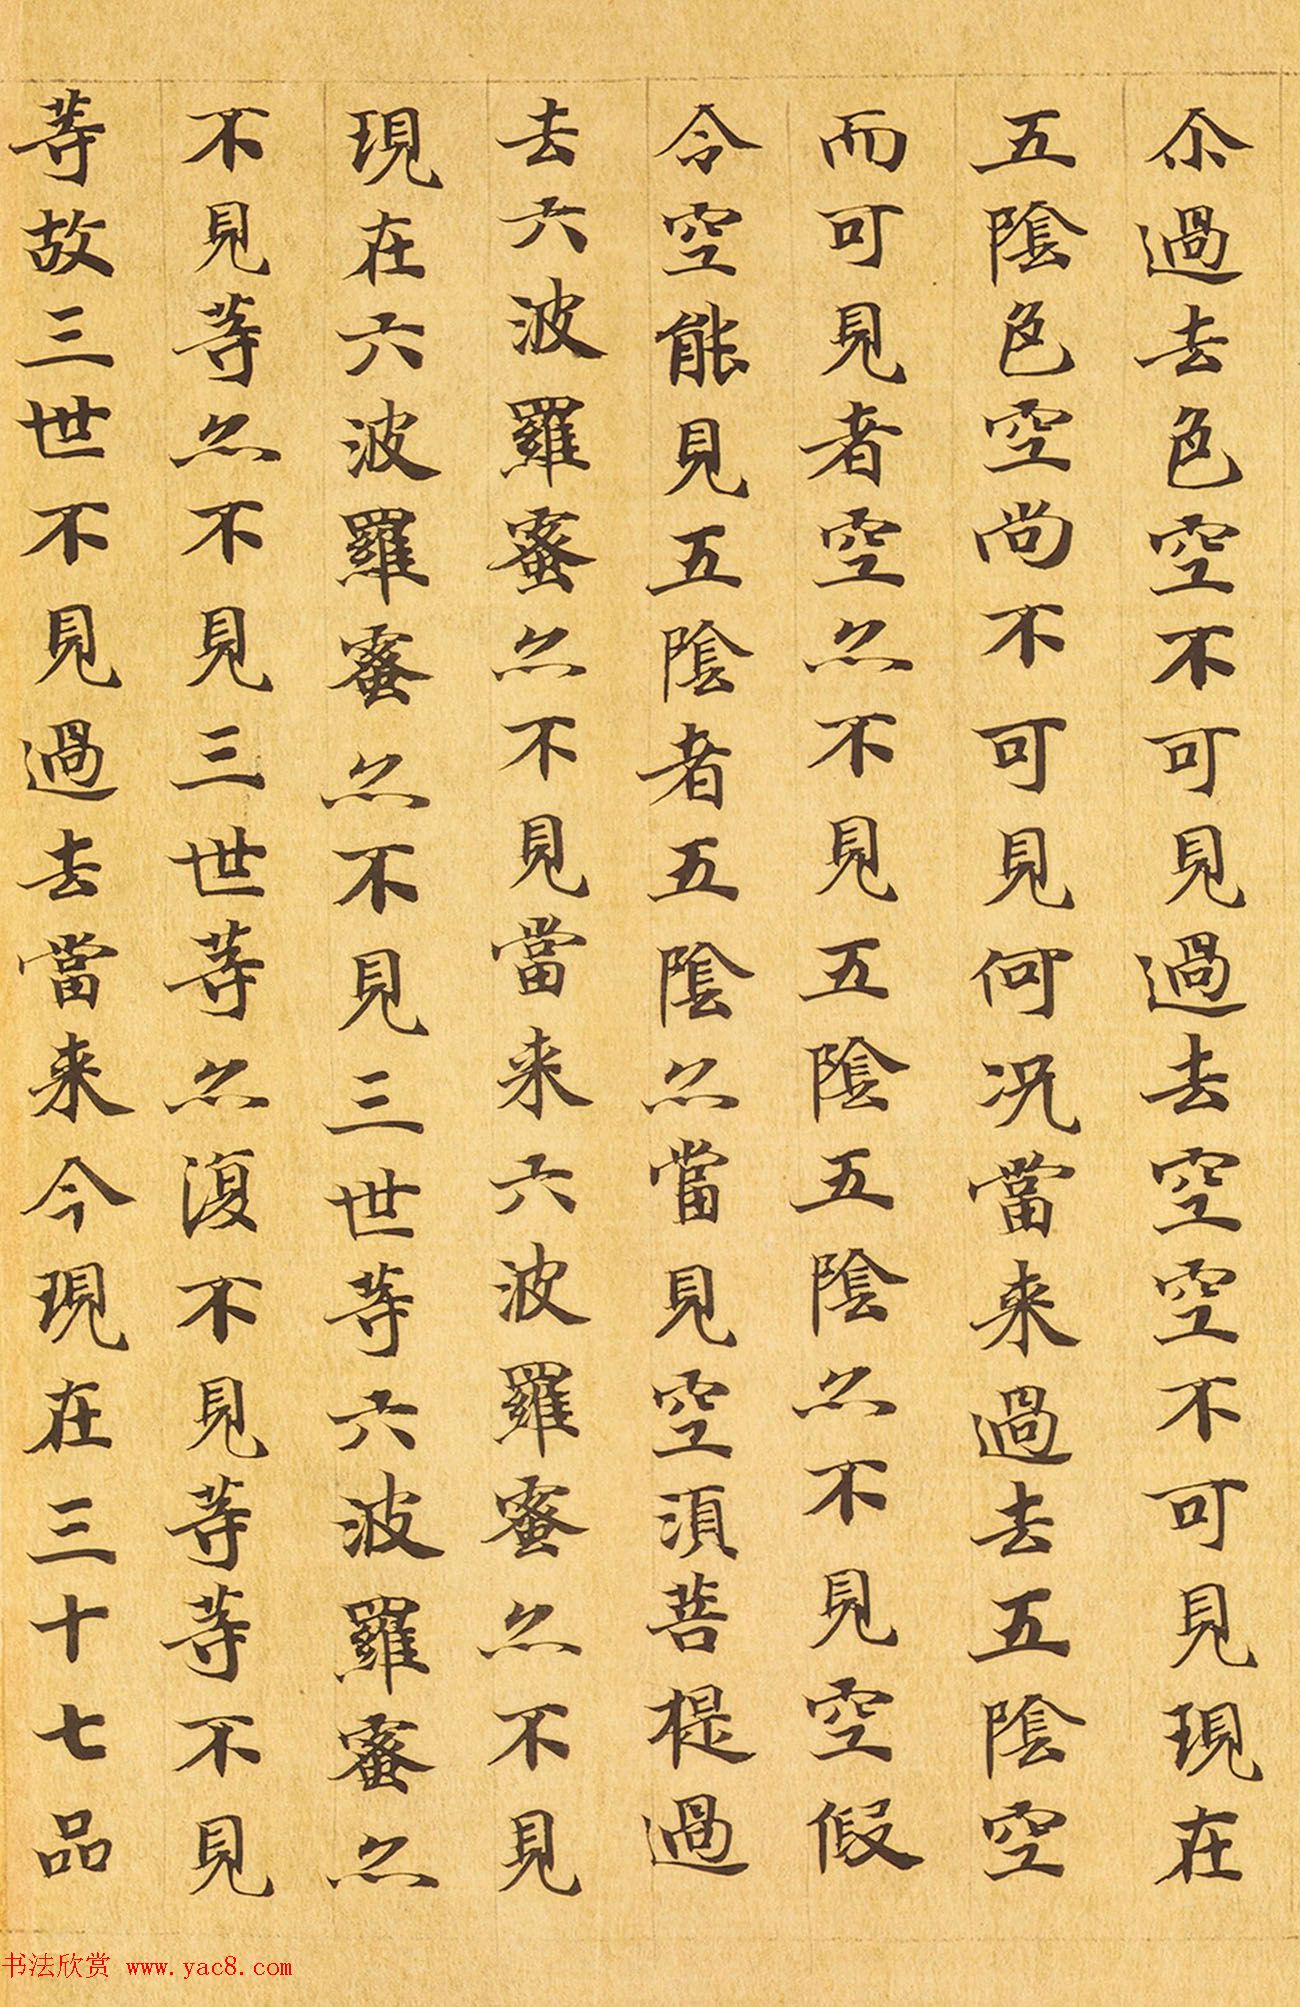 尒過去色空不可見過去空空不可見現在
五陰色空尚不可見何况當来過去五陰空
而可見者空亦不見五陰五陰亦不見空假
令空能見五陰者五陰亦當見空須菩提過
去六波羅蜜亦不見當来六波羅蜜亦不見
現在六波羅蜜亦不見三世等六波羅蜜亦
不見等亦不見三世等亦復不見等等不見
等故三世不見過去當来今現在三十七品
书法欣赏 www.yac8.com